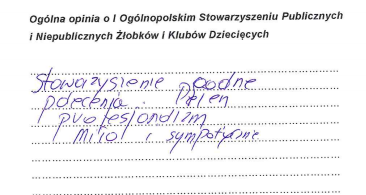 Ogólna opinia o I Ogólnopolskim Stowarzyszeniu Publicznych
i Niepublicznych Żłobków i Klubów Dziecięcych
Stowarzyszenie godne
polecenia. Pełen
profesjonalizm
Miło i sympatycznie